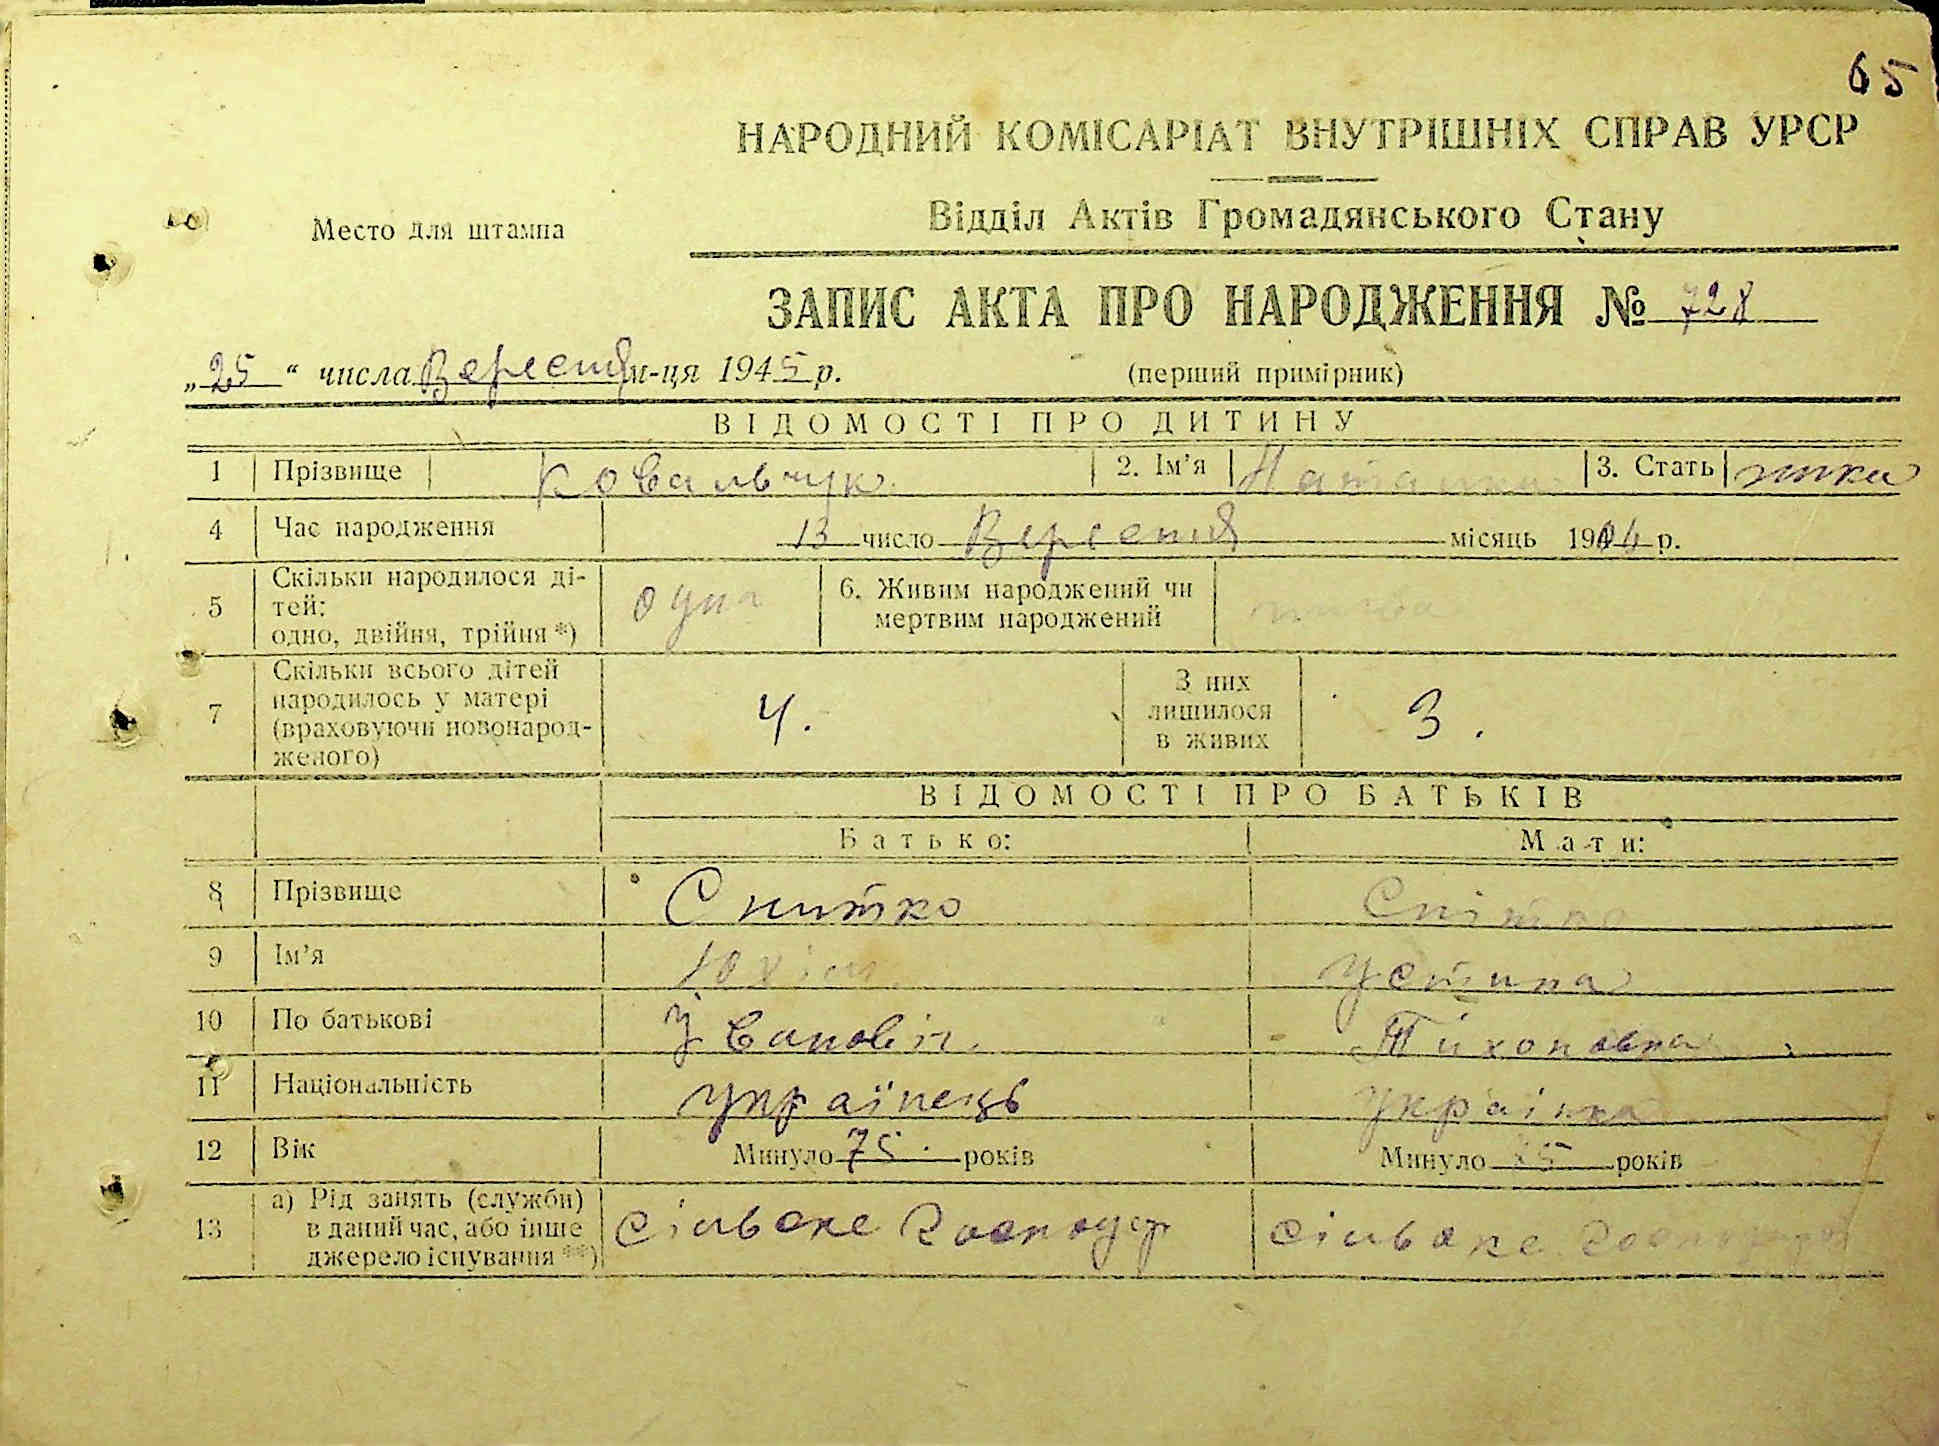 65
НАРОДНИЙ КОМІСАРІАТ ВНУТРІШНІХ СПРАВ УРСР
Место для штампа
Відділ Актів Громадянського Стану
ЗАПИС АКТА ПРО НАРОДЖЕННЯ № 728
„25“ числа Вересня м-ця 1945 р. (перший примірник)
ВІДОМОСТІ ПРО ДИТИНУ
1 Прізвище Ковальчук 2. Ім'я Наталка 3. Стать
4 Час народження 13 число Вересня місяць 1904 р.
5 Скільки народилося дітей: одно, двійня, трійня *) одна 6. Живим народжений чи мертвим народжений
7 Скільки всього дітей народилось у матері (враховуючи новонародженого) 4. З них лишилося в живих 3.
ВІДОМОСТІ ПРО БАТЬКІВ
Батько: Мати:
8 Прізвище Снитко Снітко
9 Ім'я Юхім Устина
10 По батькові Йванович Тихоновна
11 Національність українець Українка
12 Вік Минуло 75 років Минуло років
13 а) Рід занять (служби) в даний час, або інше джерело існування **) сільске господар сільске